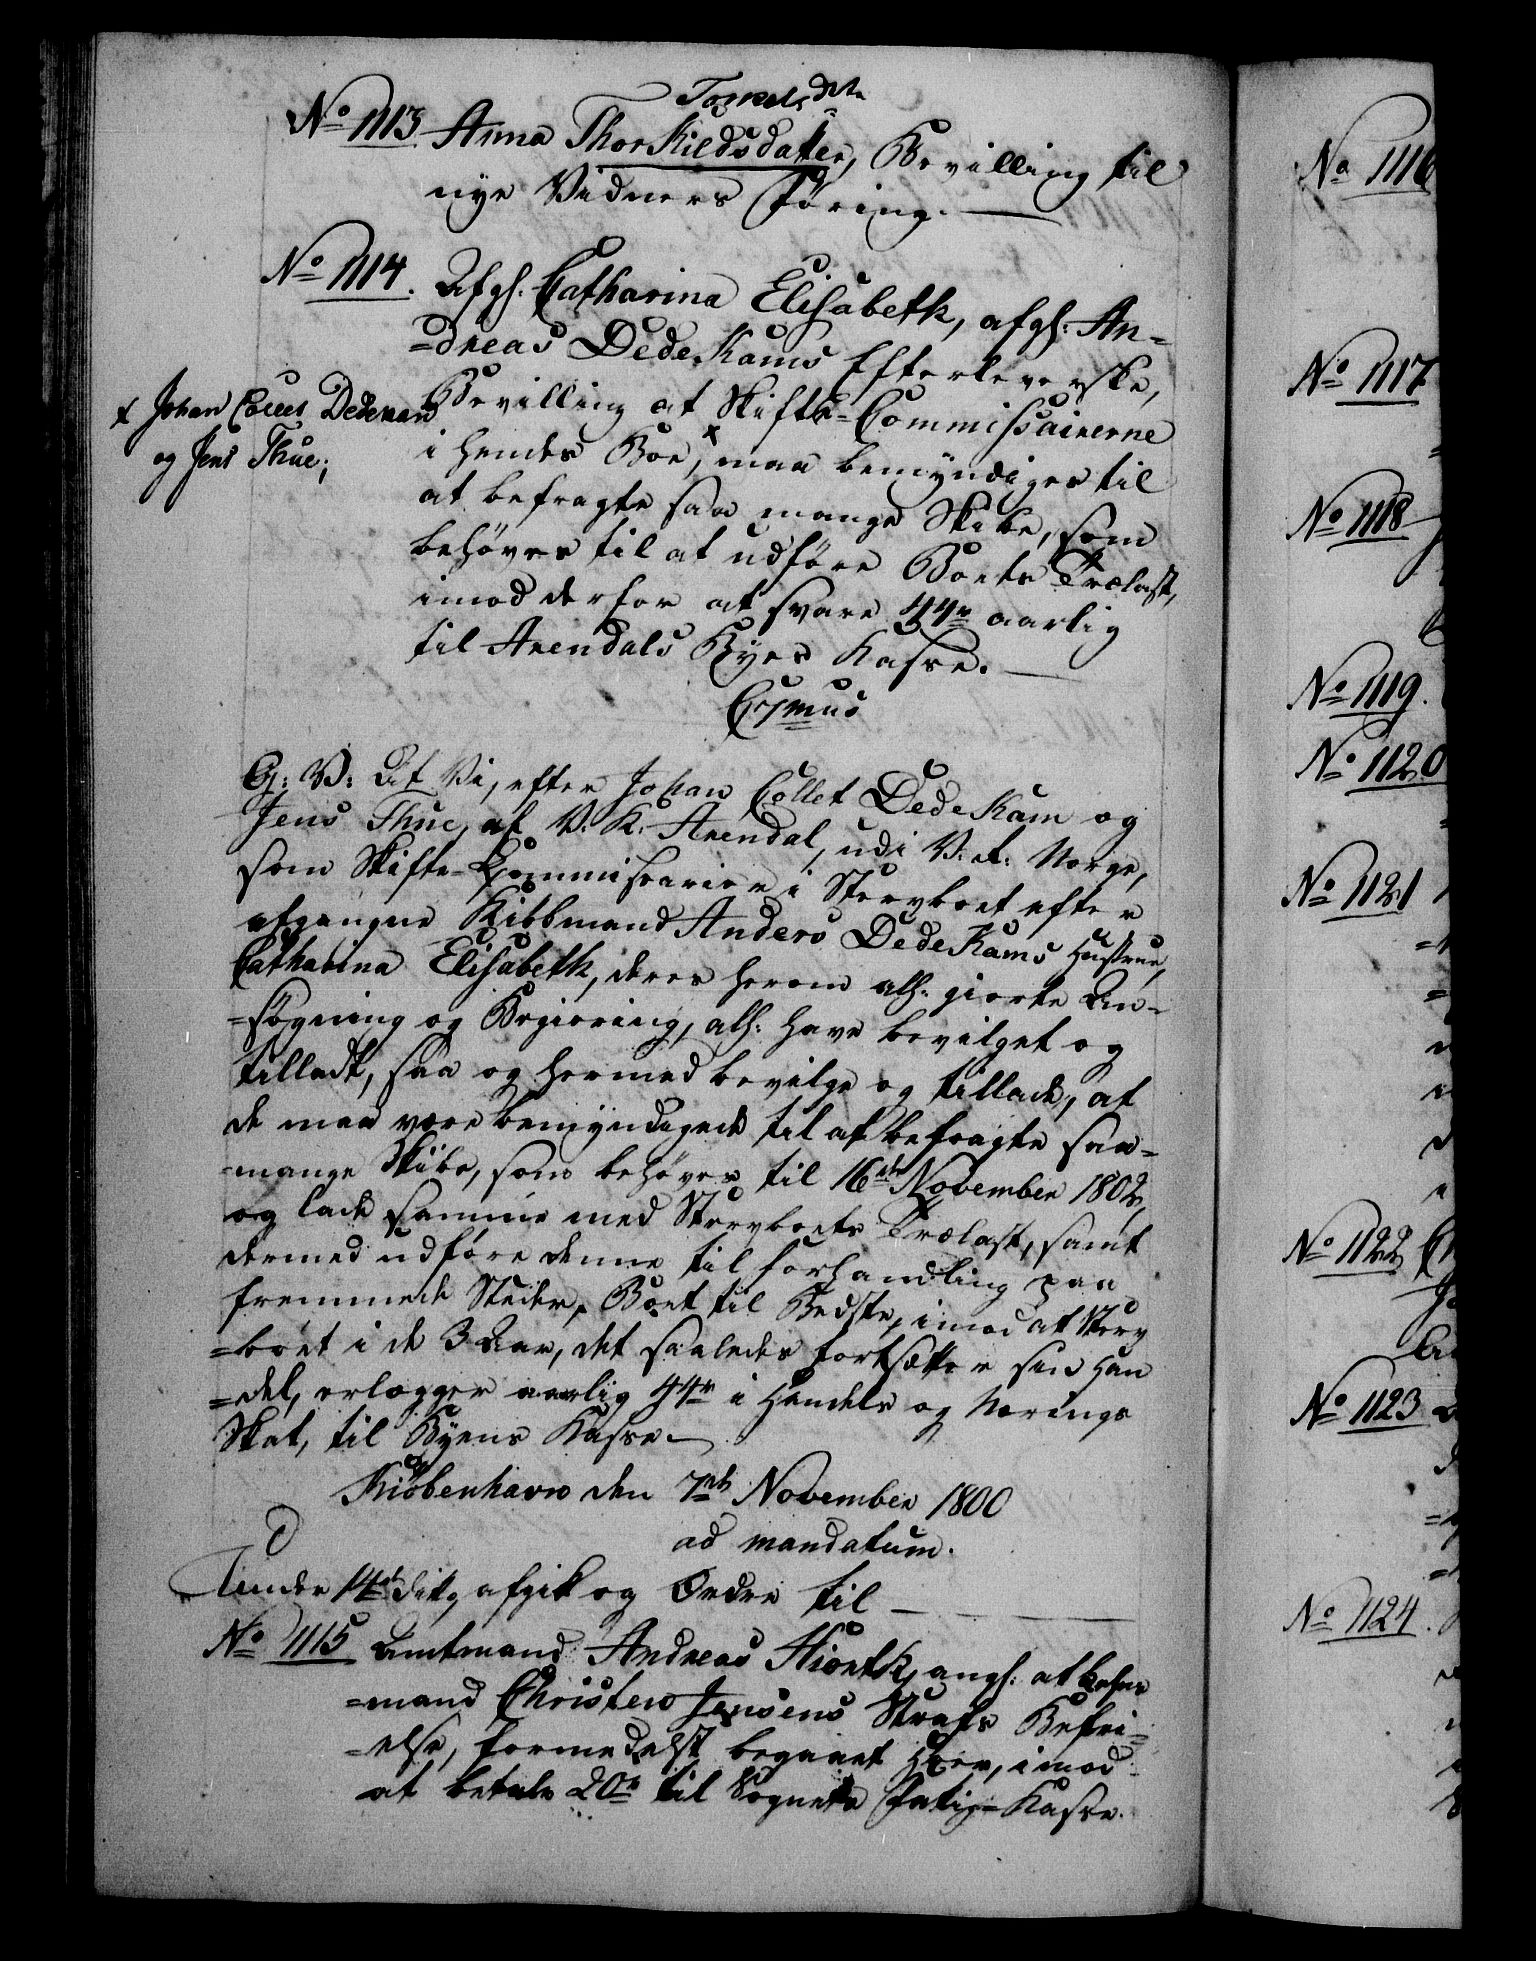 Torvels dat.
No 1113 Anna Thorkildsdatter, Bevilling til
nye Vidners Føring.
No 1114. Afgl. Catharina Elisabeth, afgl: An-
=dreas Dedekams Efterleverske,
Bevilling at Skifte-Commissairerne
i hendes Boe, x maa bemyndiges til
at befragte saa mange Skibe, som
behøves til at udføre Boets Trælast,
imod derfor at svare 44r aarlig
til Arendals Byes Kasse.
x Johan Collet Dedekam
og Jens Thue;
G: V: At Vi, efter Johan Collet Dedekam og
Jens Thue, af V. K. Arendal, udi V: R: Norge,
som Skifte-Commissarier i Stervboet efter
afgangne Kiøbmand Anders Dedekams Hustrue,
Catharina Elisabeth, deres herom allr: giorte An-
=søgning og Begiering, allr: have bevilget og
tilladt, saa og hermed bevilge og tillade, at
de maa være bemyndigede til at befragte saa-
=mange Skibe, som behøves til 16de November 1802,
og lade samme med Stervboets Trælast, samt
dermed udføre denne til Forhandling paa
fremmede Steder, Boet til Bedste, imod at Sterv
=boet i de 3 Aar, det saaledes fortsætter sin Han
=del, erlægger aarlig 44r i Handels og Nærings
Skat, til Byens Kasse.
Kiøbenhavn den 7de November 1800
ad mandatum.
Under 14de dito, afgik og Ordre til
No 1115 Amtmand Andreas Hiorth, angl: at
=mand Christen Jensens Straf Befri-
=else, formedelst begaaet Hoer, imod
at betale 20r til Sognets Fattig-Kasse.
No 1116
No 1117
No 1118
No 1119.
No 1120
No 1121
No 1122
No 1123
No 1124.